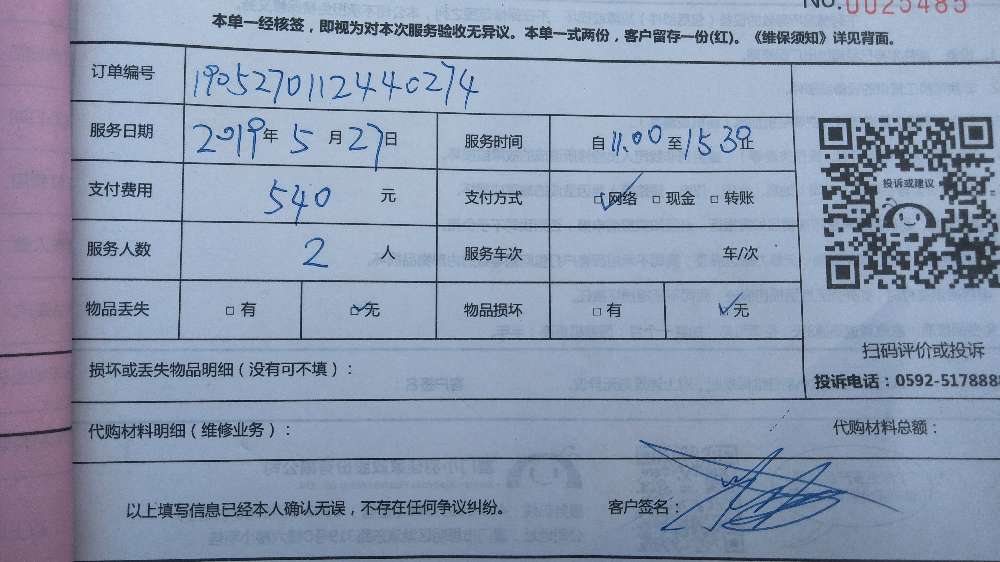 No.0025485
本单一经核签，即视为对本次服务验收无异议。本单一式两份，客户留存一份(红)。《维保须知》详见背面。
订单编号 190527011244 0274
服务日期 2019年 5 月 27日 服务时间 自 11:00 至 15:30 止
投诉或建议
支付费用 540 元 支付方式 □网络 □现金 □转账
服务人数 2 人 服务车次 车/次
物品丢失 □有 □无 物品损坏 □有 □无
扫码评价或投诉
损坏或丢失物品明细（没有可不填）：
投诉电话：0592-5178888
代购材料明细（维修业务）： 代购材料总额：
以上填写信息已经本人确认无误，不存在任何争议纠纷。 客户签名：